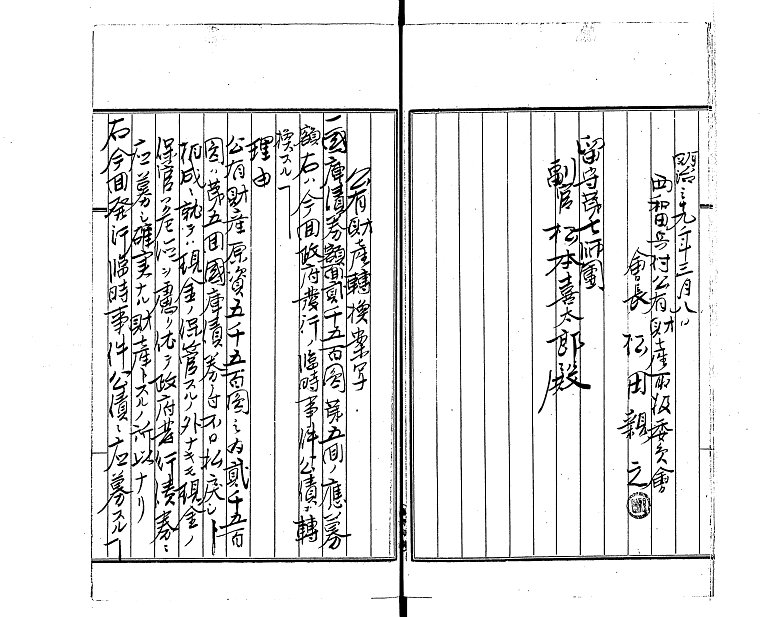 明治三十九年三月八日
西和田兵村公有財産取扱委員會
會長 松田親之
留守第七師團
副官 松本喜太郎殿
公有財産轉換案写
一國庫債券額面貳千五百圓第五回ノ應募
額右ハ今回政府発行ノ臨時事件公債ニ轉
換スル
理由
公有財産原資五千五百圓之内貳千五百
圓ハ第五回國庫債券
ニ執テハ現金ノ保管スルノ外ナキモ現金ノ
保管ハ ノ慮 政府発行債券ニ
応募シ確実ナル財産トスル所以ナリ
右今回発行臨時事件公債ニ応募スル